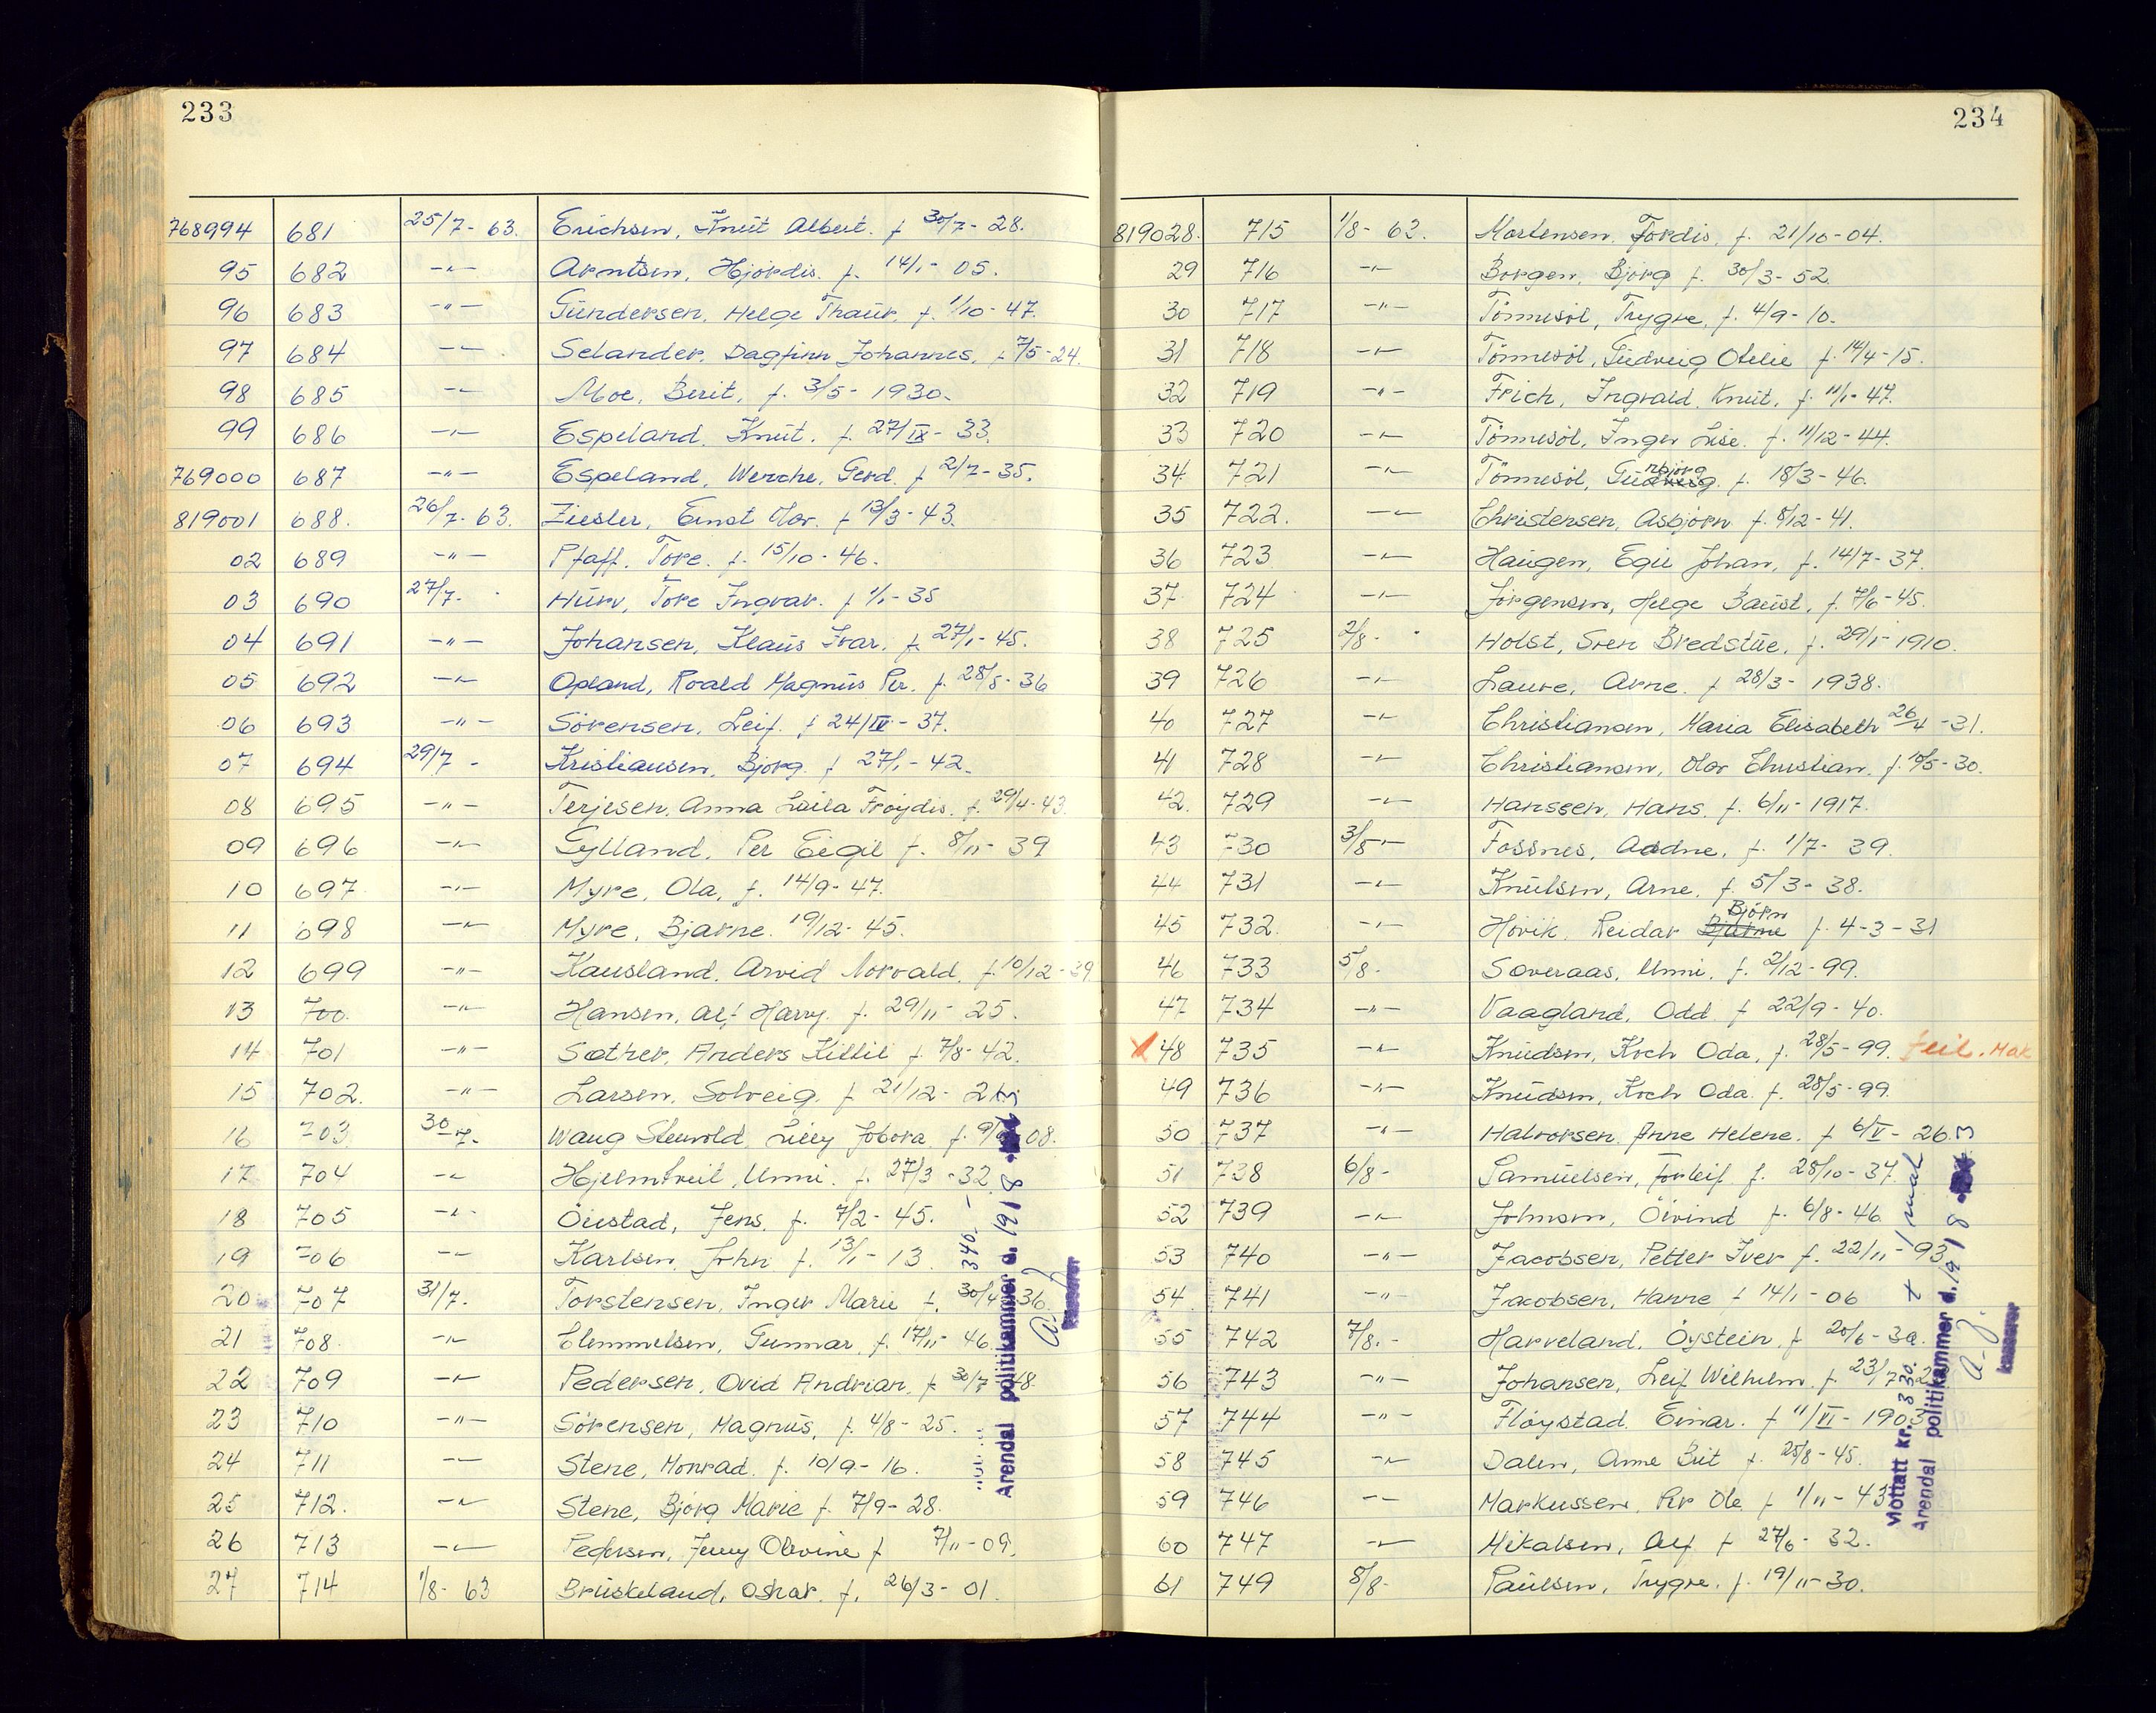 233
768994 681 25/7-63. Erichsen, Knut Albert. f 30/7-28.
95 682 -"- Arntsen, Hjördis. f. 14/1-05.
96 683 -"- Gundersen, Helge Thaur, f. 1/10-47.
97 684 -"- Selander, Dagfinn Johannes, f 7/5-24.
98 685 -"- Moe, Berit, f. 3/5-1930.
99 686 -"- Espeland, Knut. f. 27/IX-33.
769000 687 -"- Espeland, Wenche, Gerd. f 2/7-35.
819001 688. 26/7-63. Ziesler, Ernst Olav. f 13/3-43.
02 689 -"- Pfaff, Tore. f. 15/10-46.
03 690 27/7- Hurv, Tore Ingvar. f 1/1-35
04 691 -"- Johansen, Klaus Ivar. f. 27/1-45.
05 692 -"- Opland, Roald Magnus Per. f. 28/8-36
06 693 -"- Sörensen, Leif. f 24/IV-37.
07 694 29/7- Kristiansen, Björg. f 27/1-42.
08 695 -"- Terjesen, Anna Laila Fröydis. f. 29/4-43.
09 696 -"- Gylland, Per Eigil f. 8/11-39
10 697 -"- Myre, Ola, f. 14/9-47.
11 698 -"- Myre, Bjarne. 19/12-45.
12 699 -"- Kausland, Arvid Norvald. f. 10/12-39
13 700. -"- Hansen, Alf Harry. f. 29/11-25.
14 701 -"- Sæther, Anders Killil f. 7/8-42.
15 702. -"- Larsen, Solveig. f 21/12-
16 703 30/7- Waug Stenvold, Lilly f. 08.
17 704 -"- Hjelmtveit, Unni. f. 27/3-32.
18 705 -"- Öiestad, Jens, f. 7/2-45.
19 706 -"- Karlsen, John f. 13/1-13.
20 707 31/7. Torstensen, Inger Marie f. 30/4-36.
21 708. -"- Clemmetsen, Gunnar, f. 17/11-46.
22 709 -"- Pedersen, Ovid Andrian, f 30/7-48
23 710 -"- Sörensen, Magnus, f. 4/8-25.
24 711 -"- Stene, Monrad f. 10/9-16.
25 712. -"- Stene, Björg Marie f. 7/9-28.
26 713 -"- Pedersen, Jenny Olevine f 7/11-09.
27 714 1/8-63 Bruskeland, Oskar. f. 26/3-01.
340,-
Arendal politikammer d. 19/8
kasserer
234
819028. 715 1/8-63. Mortensen, Tordis, f. 21/10-04.
29 716 -"- Borgen, Bjørg f. 30/3-52.
30 717 -"- Tönnesöl, Trygve, f. 4/9-10.
31 718 -"- Tönnesöl, Gudveig Otelie f. 14/4-15.
32 719 -"- Frich, Ingvald Knut, f. 11/1-47.
33 720 -"- Tönnesöl, Inger Lise. f. 11/12-44.
34 721 -"- Tönnesöl, Gunbjørg f. 18/3-46.
35 722. -"- Christensen, Asbjørn f. 8/12-41.
36 723 -"- Haugen, Egil Johan, f. 14/7-37.
37 724 -"- Jörgensen, Helge Baust, f. 7/6-45.
38 725 2/8- Holst, Sven Bredstue, f. 29/1-1910.
39 726 -"- Laure, Arne. f 28/3-1938.
40 727 -"- Christiansen, Maria Elisabeth 26/4-31.
41 728 -"- Christiansen, Olav Christian, f. 10/5-30.
42. 729 -"- Hanssen, Hans. f. 6/11-1917.
43 730 3/8- Fossnes, Aadne, f. 1/7-39.
44 731 -"- Knutsen, Arne. f. 5/3-38.
45 732. -"- Hövik, Reidar Bjarne Björn f. 4-3-31
46 733 5/8- Soveraas, Unni, f. 2/12-99.
47 734 -"- Vaagland, Odd f 22/9-40.
x 48 735 -"- Knudsen, Koch Oda, f. 28/5-99. feil. Mak
49 736 -"- Knudsen, Koch Oda f. 28/5-99.
50 737 -"- Halvorsen, Anne Helene. f 6/V-26.
51 738 6/8- Samuelsen, Torleif f. 28/10-37.
52 739 -"- Johnsen, Öivind f. 6/8-46.
53 740 -"- Jacobsen, Petter Iver f. 22/11-93
54 741 -"- Jacobsen, Hanne f 14/1-06
55 742 7/8.- Harveland, Öystein, f 20/6-30.
56 743 -"- Johansen, Leif Wilhelm. f. 23/7
57 744 -"- Flöystad, Einar. f 11/VI-1903
58 745 -"- Dalen, Anne Brit f. 25/8-45.
59 746 -"- Markussen, Per Ole f 1/11-43
60 747 -"- Mikalsen, Alf f 27/6-32.
61 749 8/8- Paulsen, Trygve. f. 19/11-30.
Mottatt kr. 330. + 1 mak
Arendal politikammer d. 19/8
kasserer